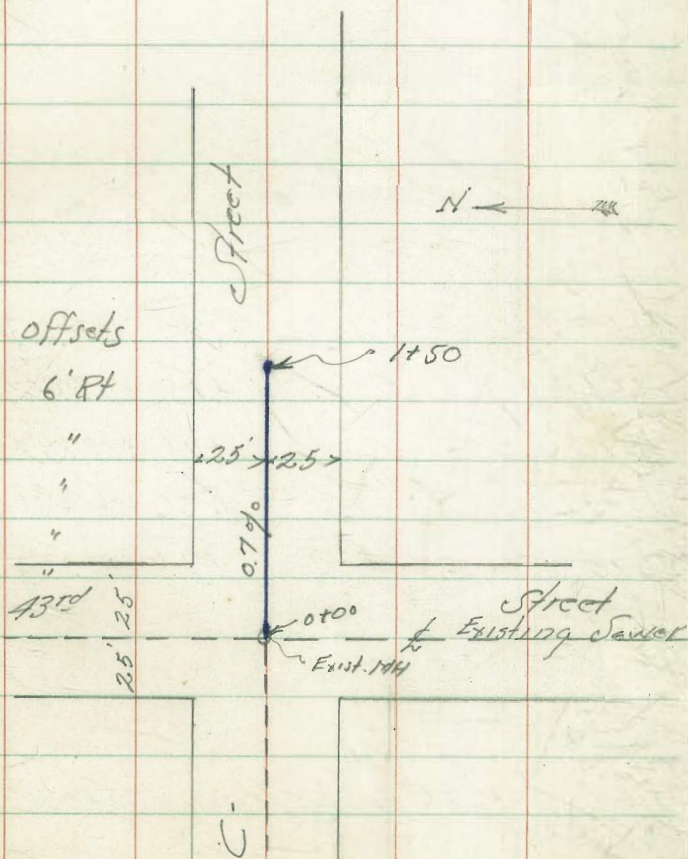 Street
N
offsets
6' Rt
"
"
"
"
1+50
25' 25
0.7%
43rd Street
25' 25'
0+00
℄ Existing Sewer
Exist. MH
C-